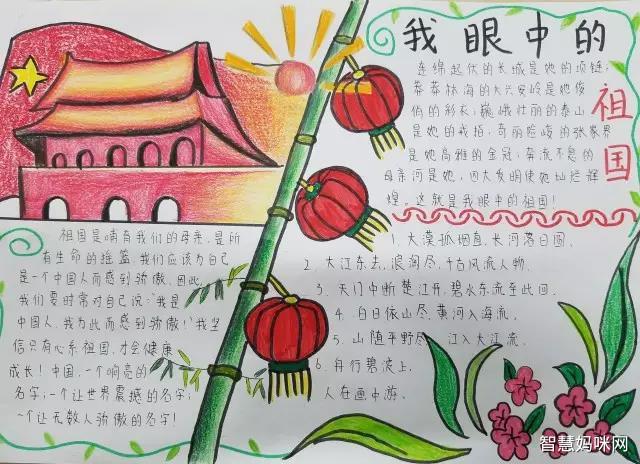 我眼中的
祖国
连绵起伏的长城是她的项链；
莽莽林海的大兴安岭是她俊
俏的彩衣；巍峨壮丽的泰山
是她的戒指；奇丽险峻的张家界
是她高雅的金冠；奔流不息的
母亲河是她，四大发明使她灿烂辉
煌。这就是我眼中的祖国！
1.大漠孤烟直，长河落日圆。
2.大江东去，浪淘尽，千古风流人物.
3.天门中断楚江开，碧水东流至此回.
4.白日依山尽，黄河入海流。
5.山随平野尽，江入大江流.
6.舟行碧波上，
人在画中游.
祖国是哺育我们的母亲，是所
有生命的摇篮，我们应该为自己
是一个中国人而感到骄傲。因此，
我们要时常对自己说：“我是
中国人，我为此而感到骄傲！”我坚
信只有心系祖国，才会健康
成长！中国，一个响亮的
名字；一个让世界震撼的名字；
一个让无数人骄傲的名字！
智慧妈咪网